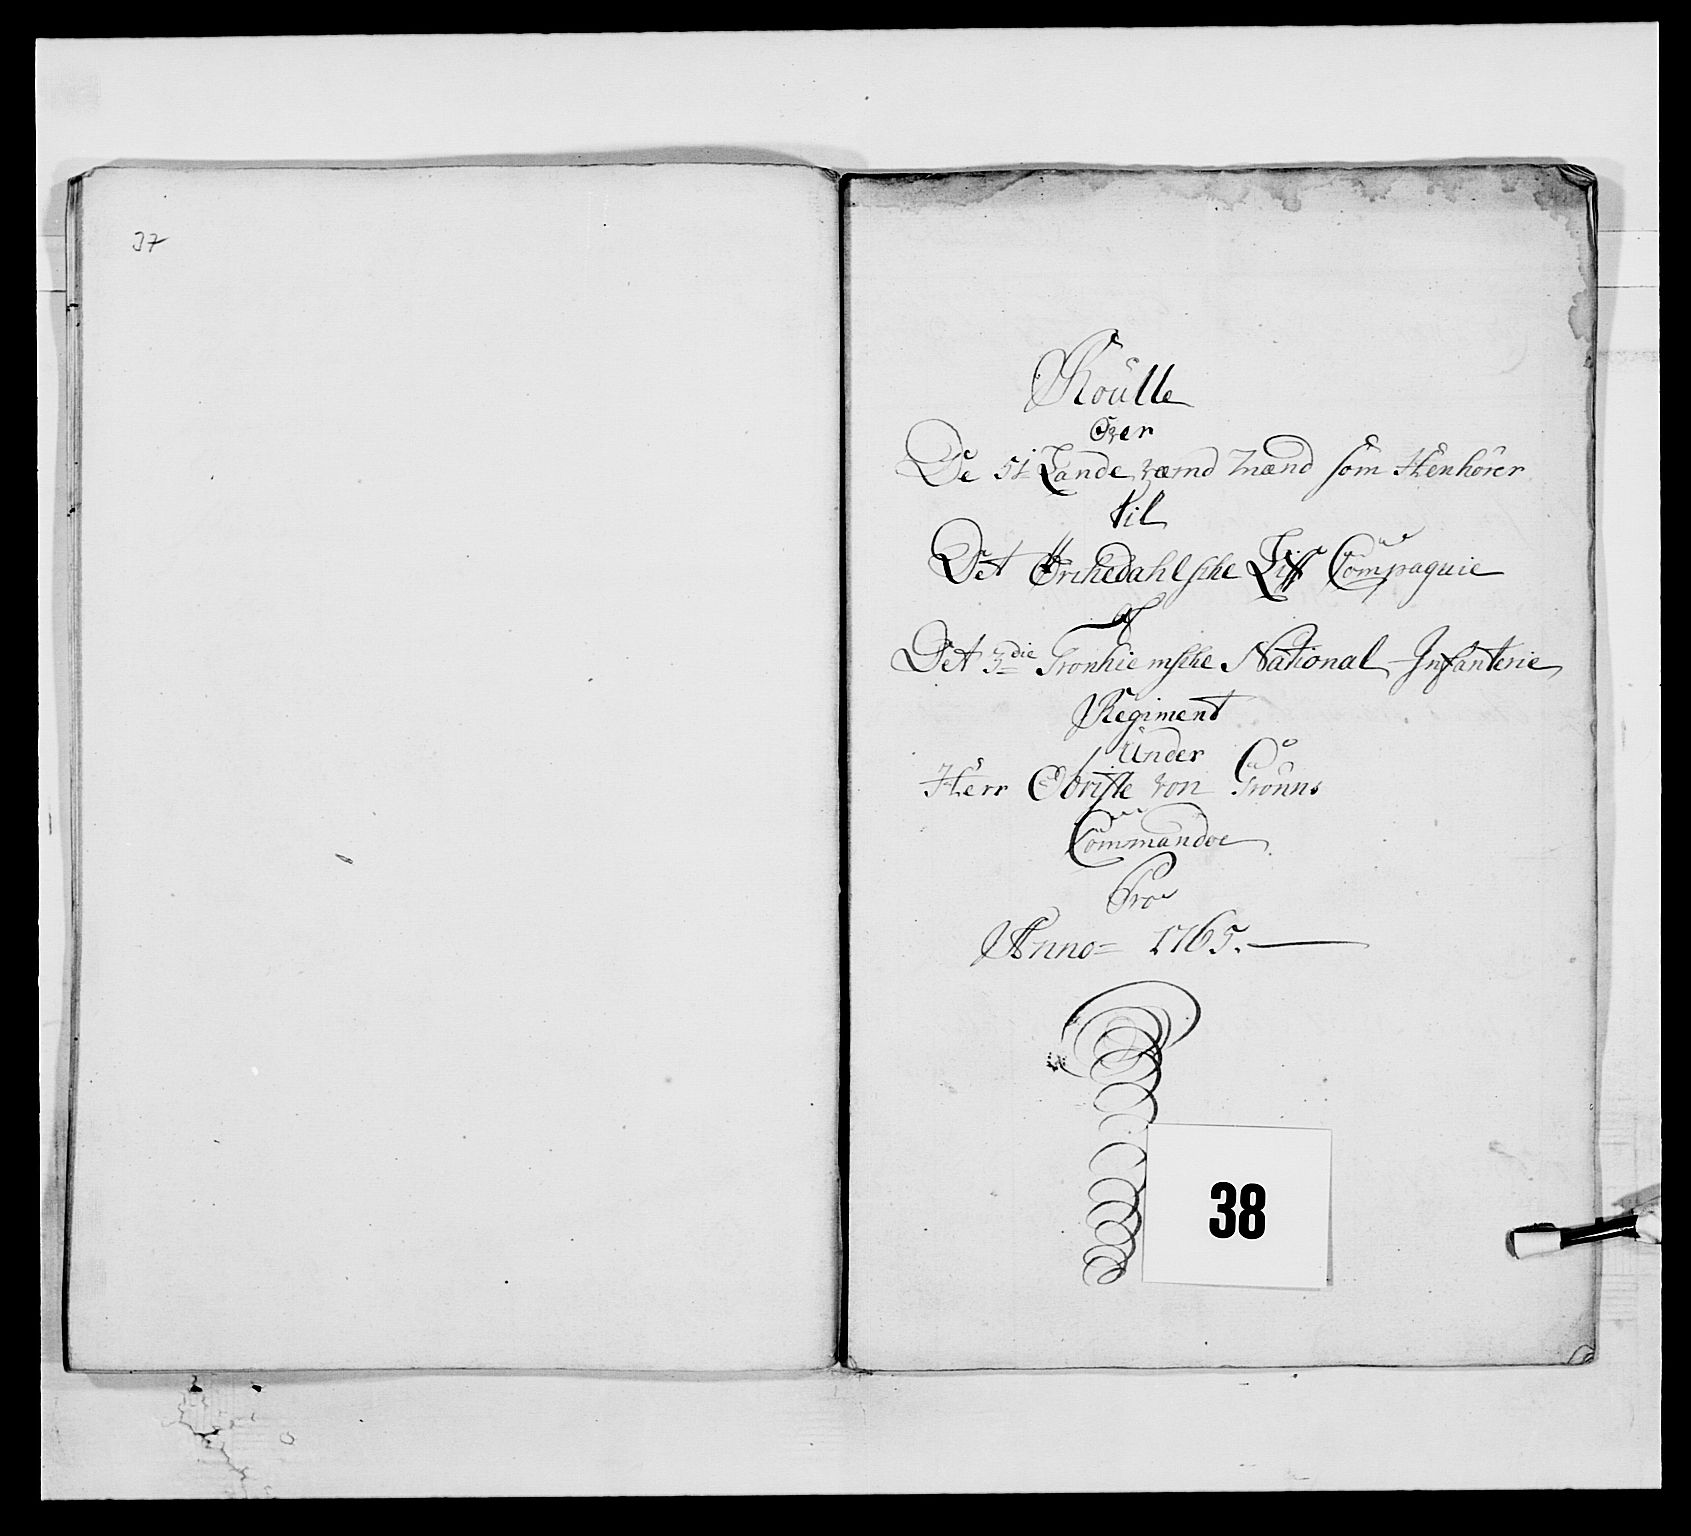 37
Roulle
Over
De 51 Lande værnd Mænd som Henhörer
til
Det Örchedahlsche Liff Compagnie
af
Det 3die Tronhiemsche National Infanterie
Regiment
Under
Herr Obriste von Grönns
Commandoe
Pro
Anno= 1765.
38